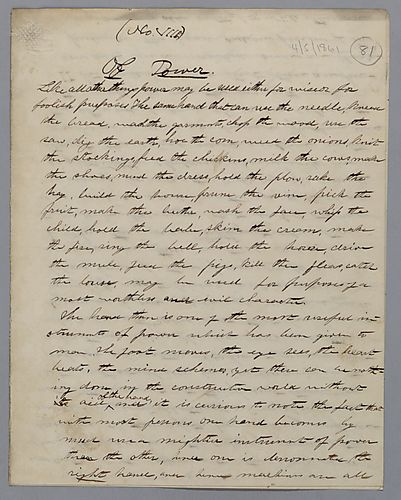 (No VIII)
4/5/1861
81
Of Power.
Like all other things power may be used either for wise or for
foolish purposes. The same hand that can use the needle, knead
the bread, wash the garments, chop the wood, use the
saw, dig the earth, hoe the corn, weed the onions, knit
the stockings, feed the chickens, milk the cows, make
the shoes, mend the dress, hold the plow, rake the
hay, build the house, prune the vine, pick the
fruit, make the butter, wash the face, whip the
child, hold the baby, skim the cream, make
the fire, ring the bell, hold the horse, drive
the mule, feed the pigs, kill the fleas, catch
the louse, may be used for purposes of a
most worthless and evil character.
The hand then is one of the most useful in-
struments of power which has been given to
man. The foot moves, the eye sees, the heart
beats, the mind schemes, yet there can be noth-
ing done in the constructive world without
the aid of the hand, and it is curious to note the fact that
with most persons one hand becomes by
much use a mightier instrument of power
than the other, hence one is denominated the
right hand, and hence machines are all